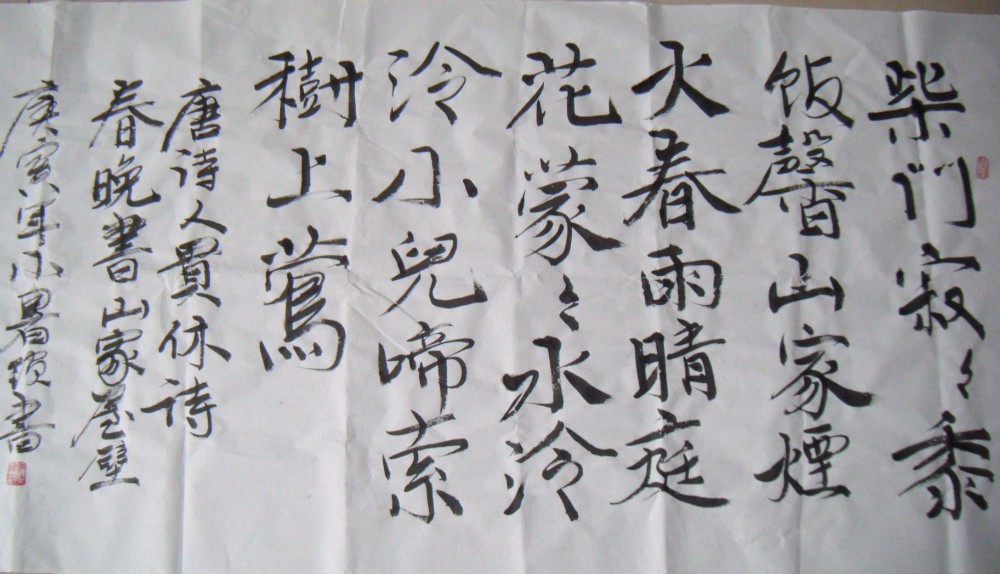 柴門寂々黍
飯馨山家煙
火春雨晴庭
花蒙々水泠
泠小兒啼索
樹上鶯
唐诗人貫休诗
春晚書山家屋壁
庚寅年小暑琐書